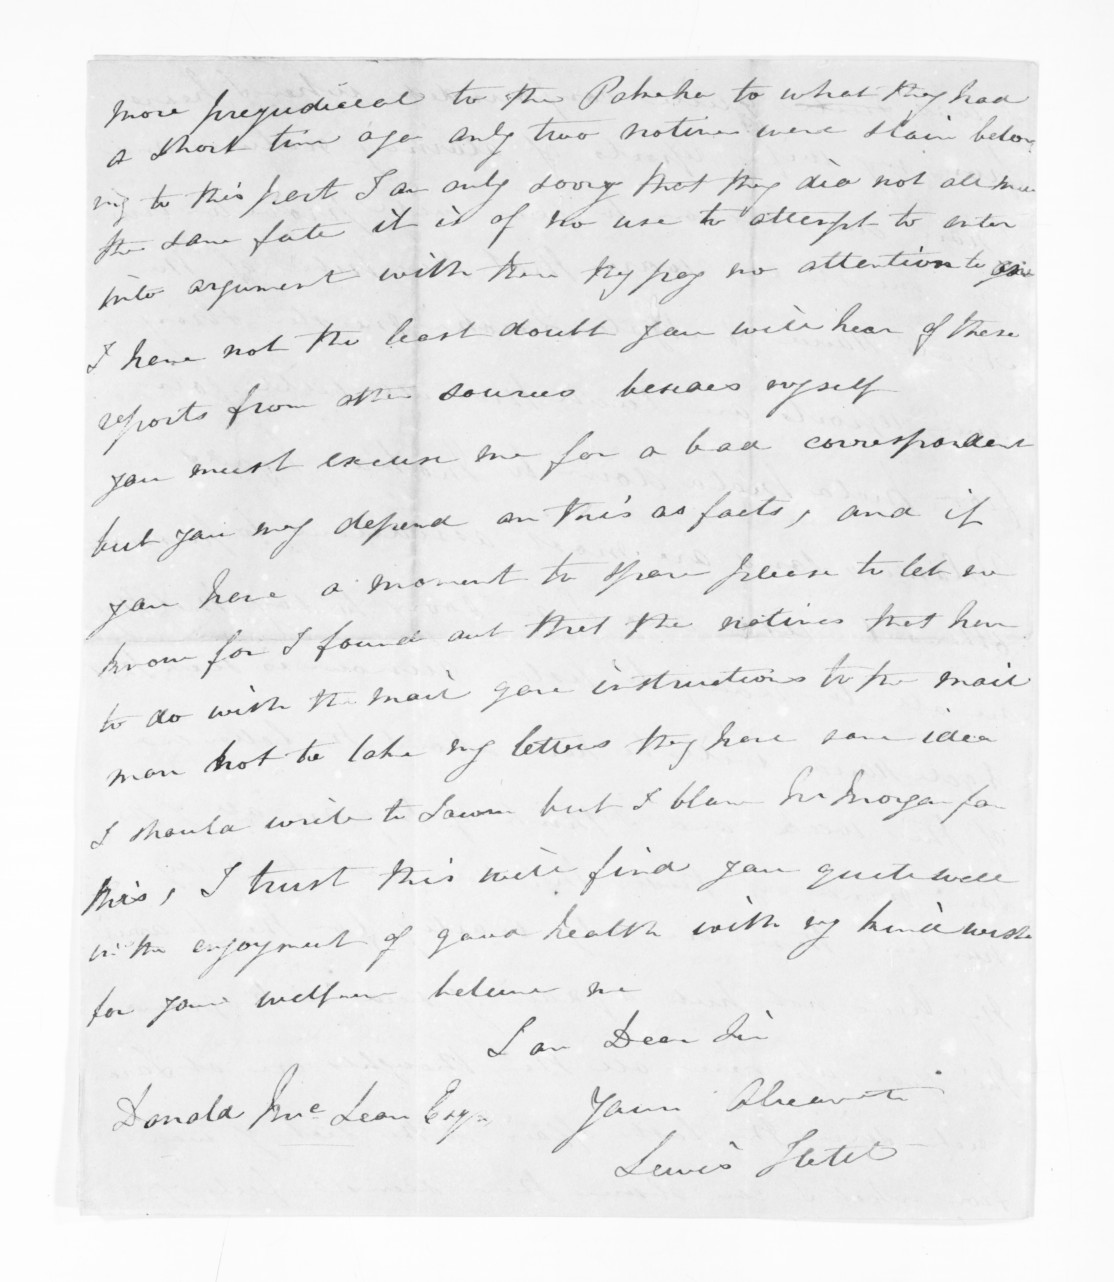 more prejudiceal to the Pakeha to what they had
a short time ago only two natives were slain belon
ing to this part I am only sorry that they did not all mee
the same fate it is of no use to attempt to enter
into argument with them they pay no attention to
I have not the least doubt you will hear of these
reports from other sources besides myself
you must excuse me for a bad correspondent
but you may depend on this as facts, and if
you have a moment to spare please to let me
know for I found out that the natives that have
to do with the mail gave instructions to the mail
man not to take my letters they have some idea
I should write to but I blame Mr Morgan for
this, I trust this will find you quite well
in the enjoyment of good health with my kind wishe
for your welfare believe me
I am Dear Sir
Donald Mc Lean Esqr Yours
Lewis